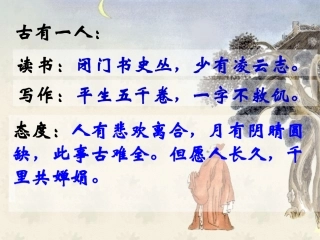 古有一人：
读书：闭门书史丛，少有凌云志。
写作：平生五千卷，一字不救饥。
态度：人有悲欢离合，月有阴晴圆
缺，此事古难全。但愿人长久，千
里共婵娟。